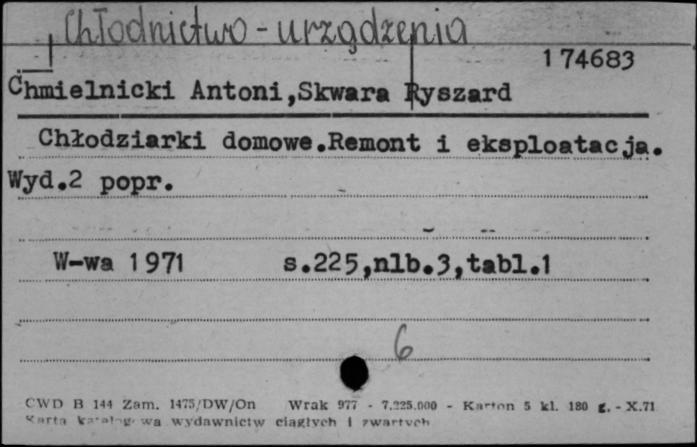 Chłodnictwo - urządzenia
174683
Chmielnicki Antoni,Skwara Ryszard
Chłodziarki domowe.Remont i eksploatacja.
Wyd.2 popr.
W-wa 1971 s.225,nlb.3,tabl.1
6
CWD B 144 Zam. 1475/DW/On Wrak 977 - 7.225.000 - Karton 5 kl. 180 g. - X.71
Karta katalogowa wydawnictw ciągłych i zwartych